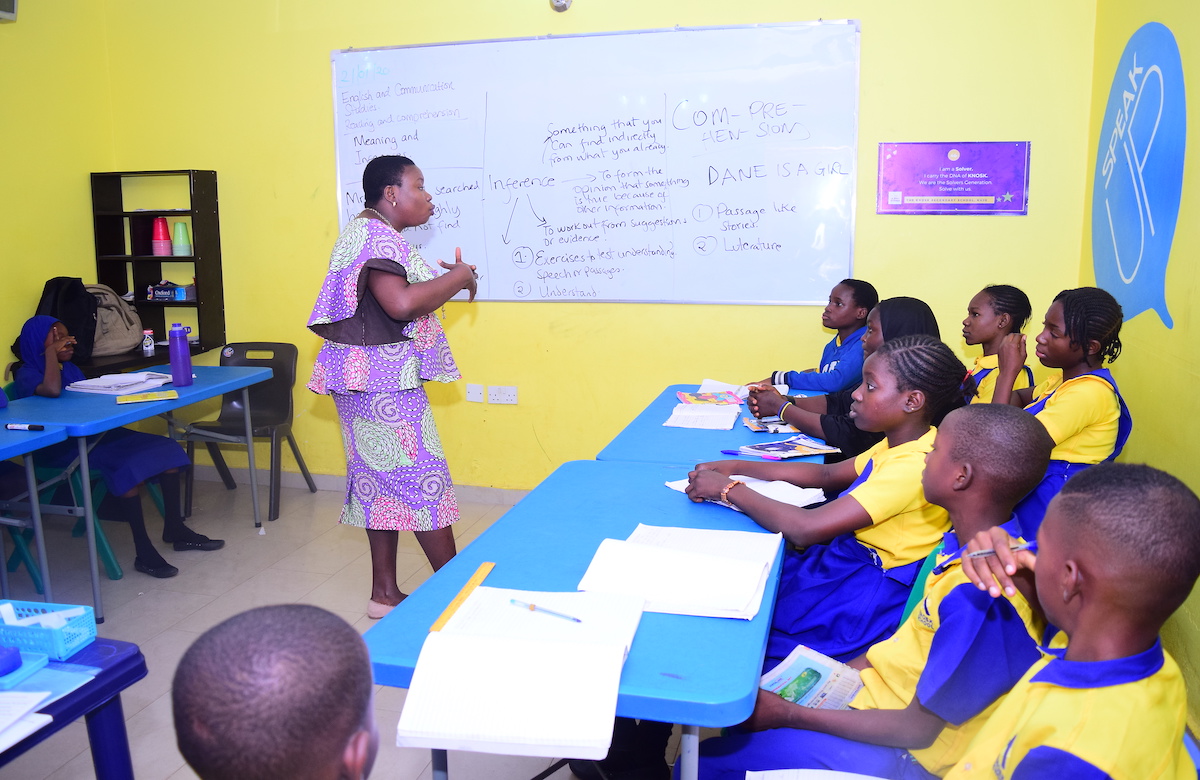 English and Communication
Studies
Reading and comprehension
Meaning and
searched
not find
Inference
Something that you
Can find indirectly
from what you already
To form the
opinion that something
is true because of
other information
To work out from suggestions
or evidence
1. Exercises to test understanding
Speech or Passages.
2 Understand
COM-PRE-
HEN-SION
DANE IS A GIRL
1 Passage like
Stories!
2 Literature
I am a Solver.
I carry the DNA of KHOSK.
We are the Solvers Generation.
Solve with us
SPEAK
UP
Oxford